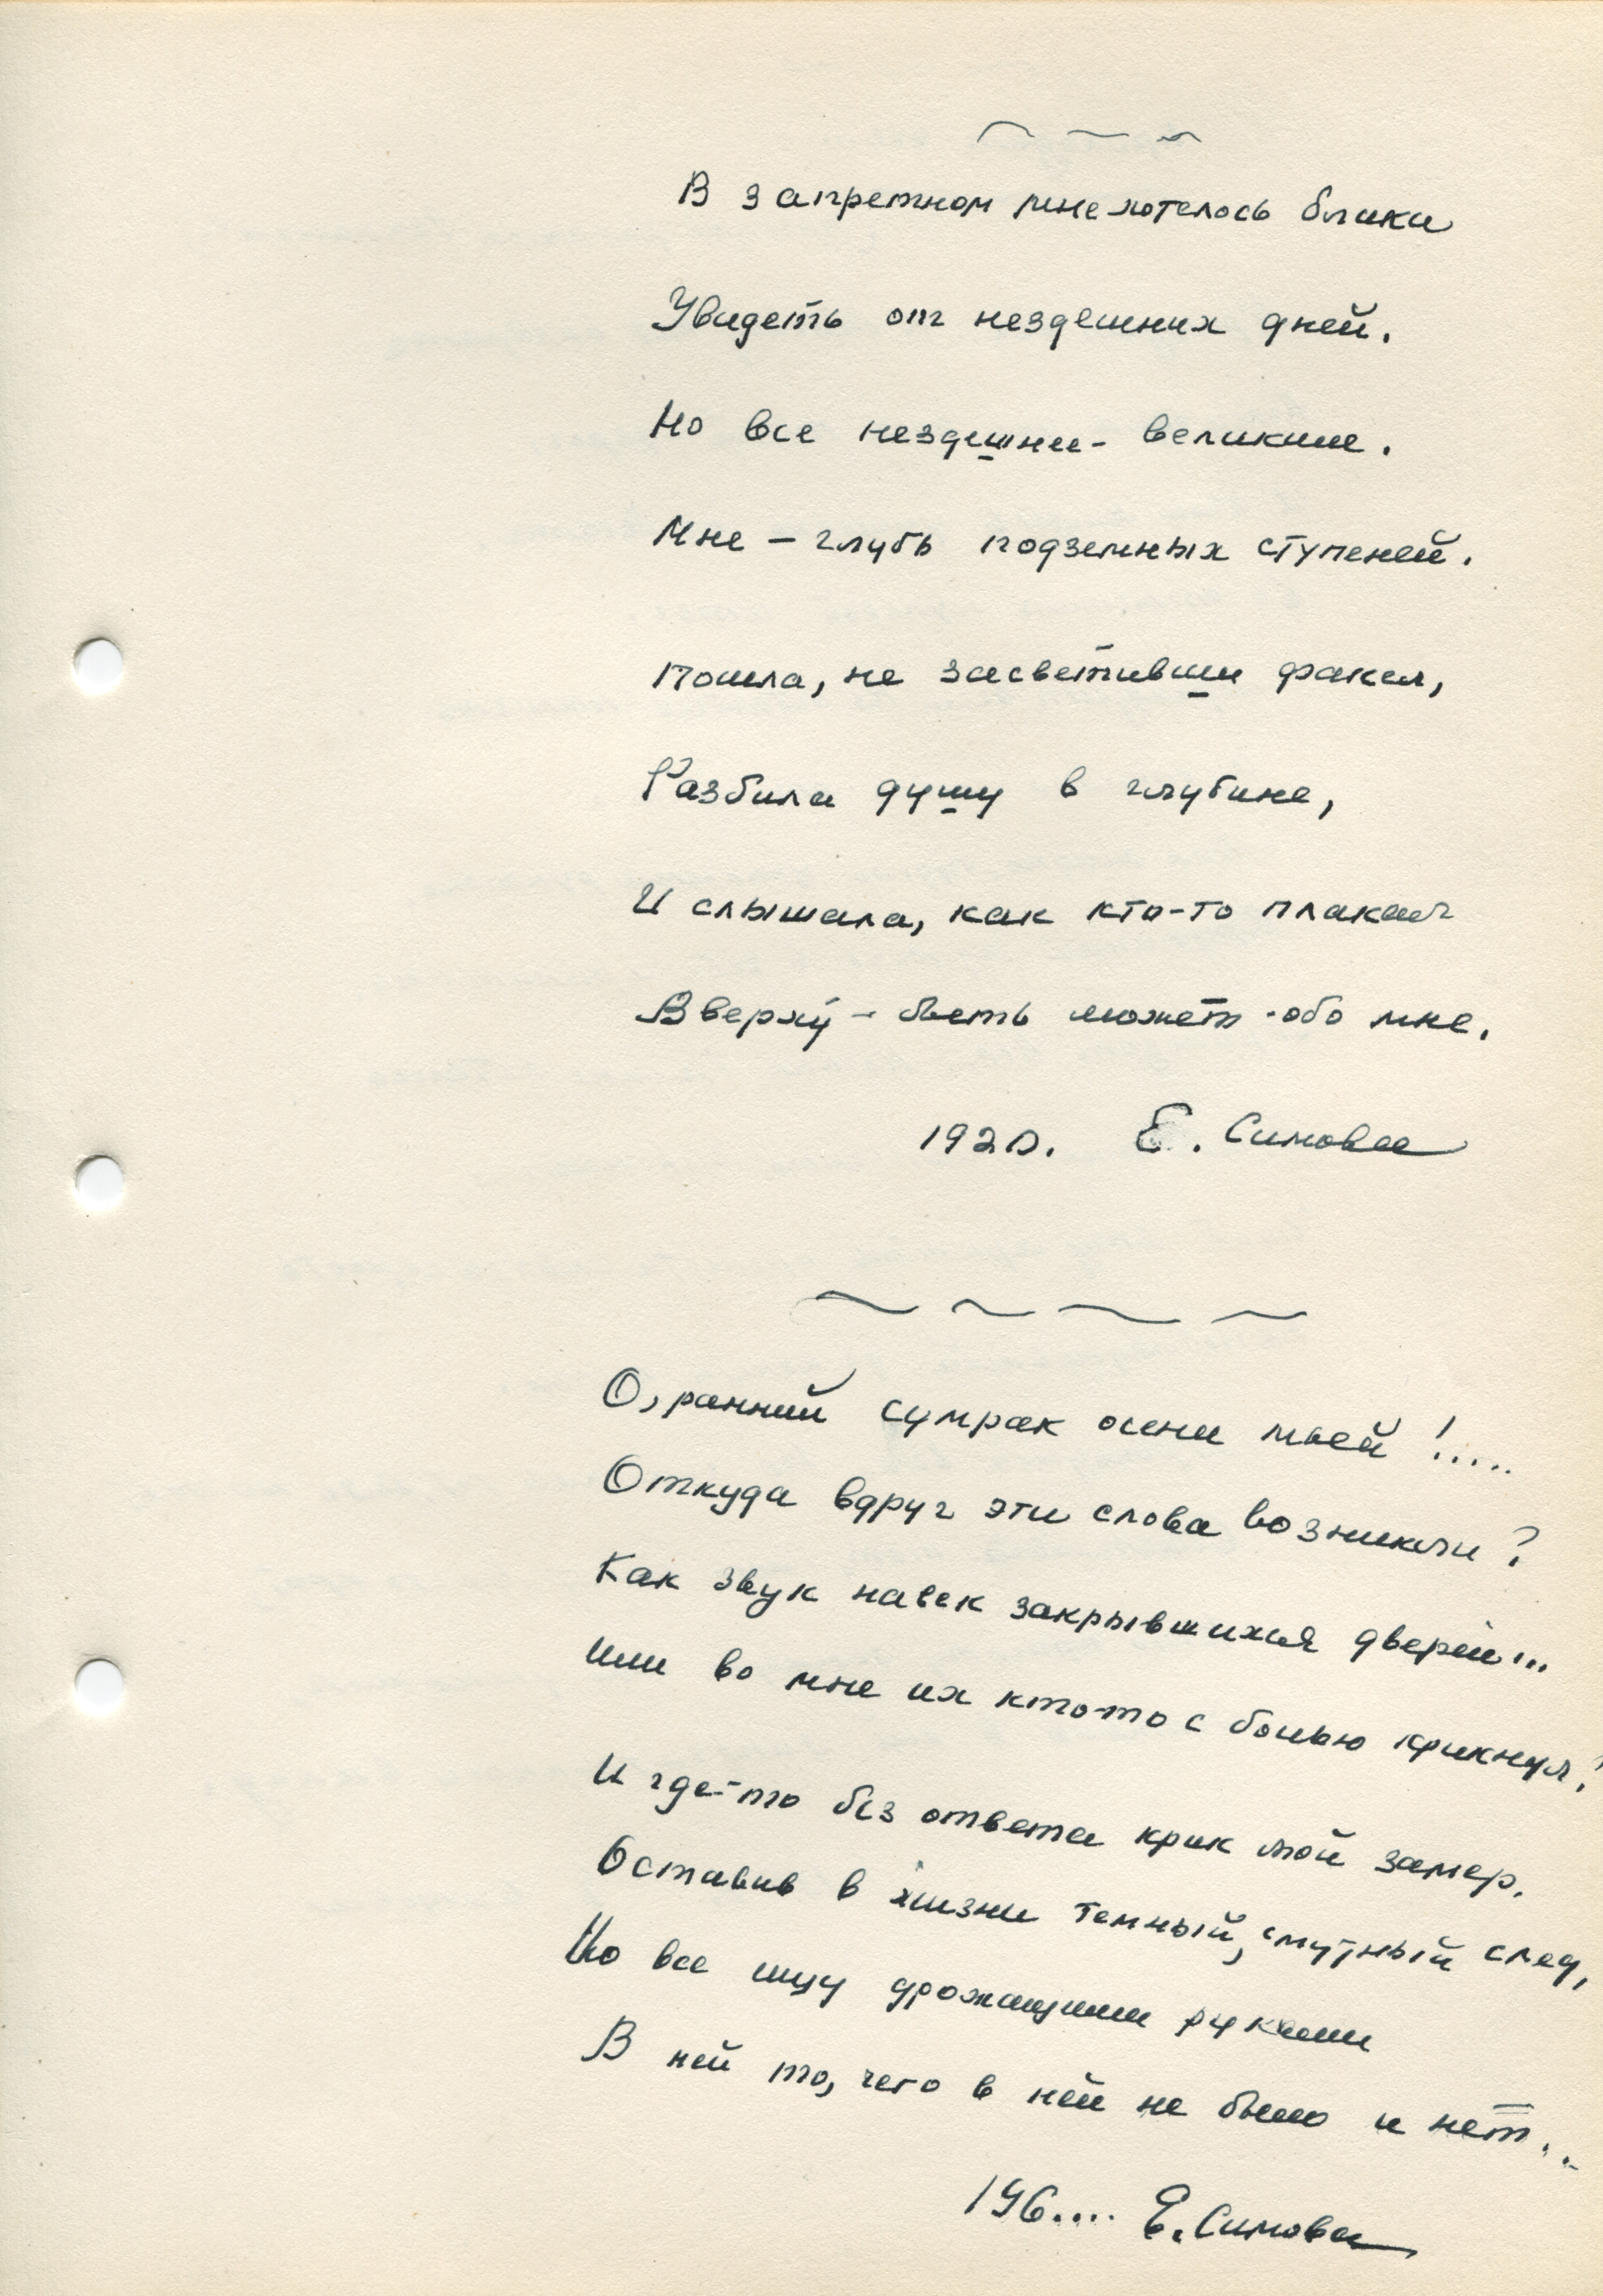 В запретном мне хотелось блики
Увидеть от нездешних дней.
Но все нездешнее - великие.
Мне – глубь подземных ступеней.
Пошла, не засветивши факел,
Разбила душу в глубине,
И слышала, как кто-то плакал
Вверху́ – быть может - обо мне.
1920. Е. Симова
О, ранний сумрак осени моей!.....
Откуда вдруг эти слова возникли?
Как звук навек закрывшихся дверей...
Или во мне их кто-то с болью крикнул?
И где-то без ответа крик мой замер.
Оставив в жизни темный, смутный след,
Но все ищу дрожащими руками
В ней то, чего в ней не было и нет...
196.... Е. Симова